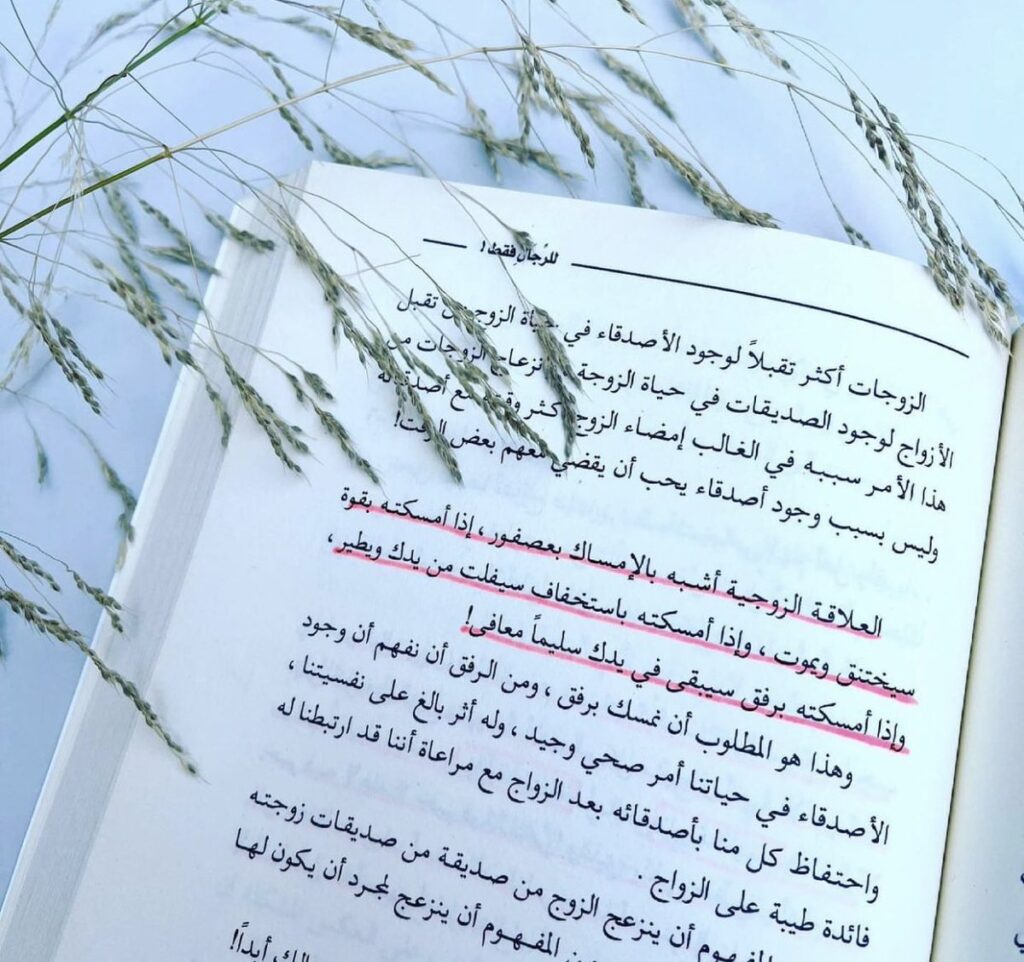 للرّجال فقط!
الزوجات أكثر تقبلاً لوجود الأصدقاء في حياة الزوج من تقبل
الأزواج لوجود الصديقات في حياة الزوجة انزعاج الزوجات من
هذا الأمر سببه في الغالب إمضاء الزوج أكثر وقته مع أصدقائه
وليس بسبب وجود أصدقاء يحب أن يقضي معهم بعض الوقت!
العلاقة الزوجية أشبه بالإمساك بعصفور، إذا أمسكته بقوة
سيختنق ويموت، وإذا أمسكته باستخفاف سيفلت من يدك ويطير،
وإذا أمسكته برفق سيبقى في يدك سليماً معافى!
وهذا هو المطلوب أن نمسك برفق، ومن الرفق أن نفهم أن وجود
الأصدقاء في حياتنا أمر صحي وجيد، وله أثر بالغ على نفسيتنا،
واحتفاظ كل منا بأصدقائه بعد الزواج مع مراعاة أننا قد ارتبطنا له
فائدة طيبة على الزواج.
المفهوم أن ينزعج الزوج من صديقة من صديقات زوجته
المفهوم أن ينزعج لمجرد أن يكون لها
أبداً!